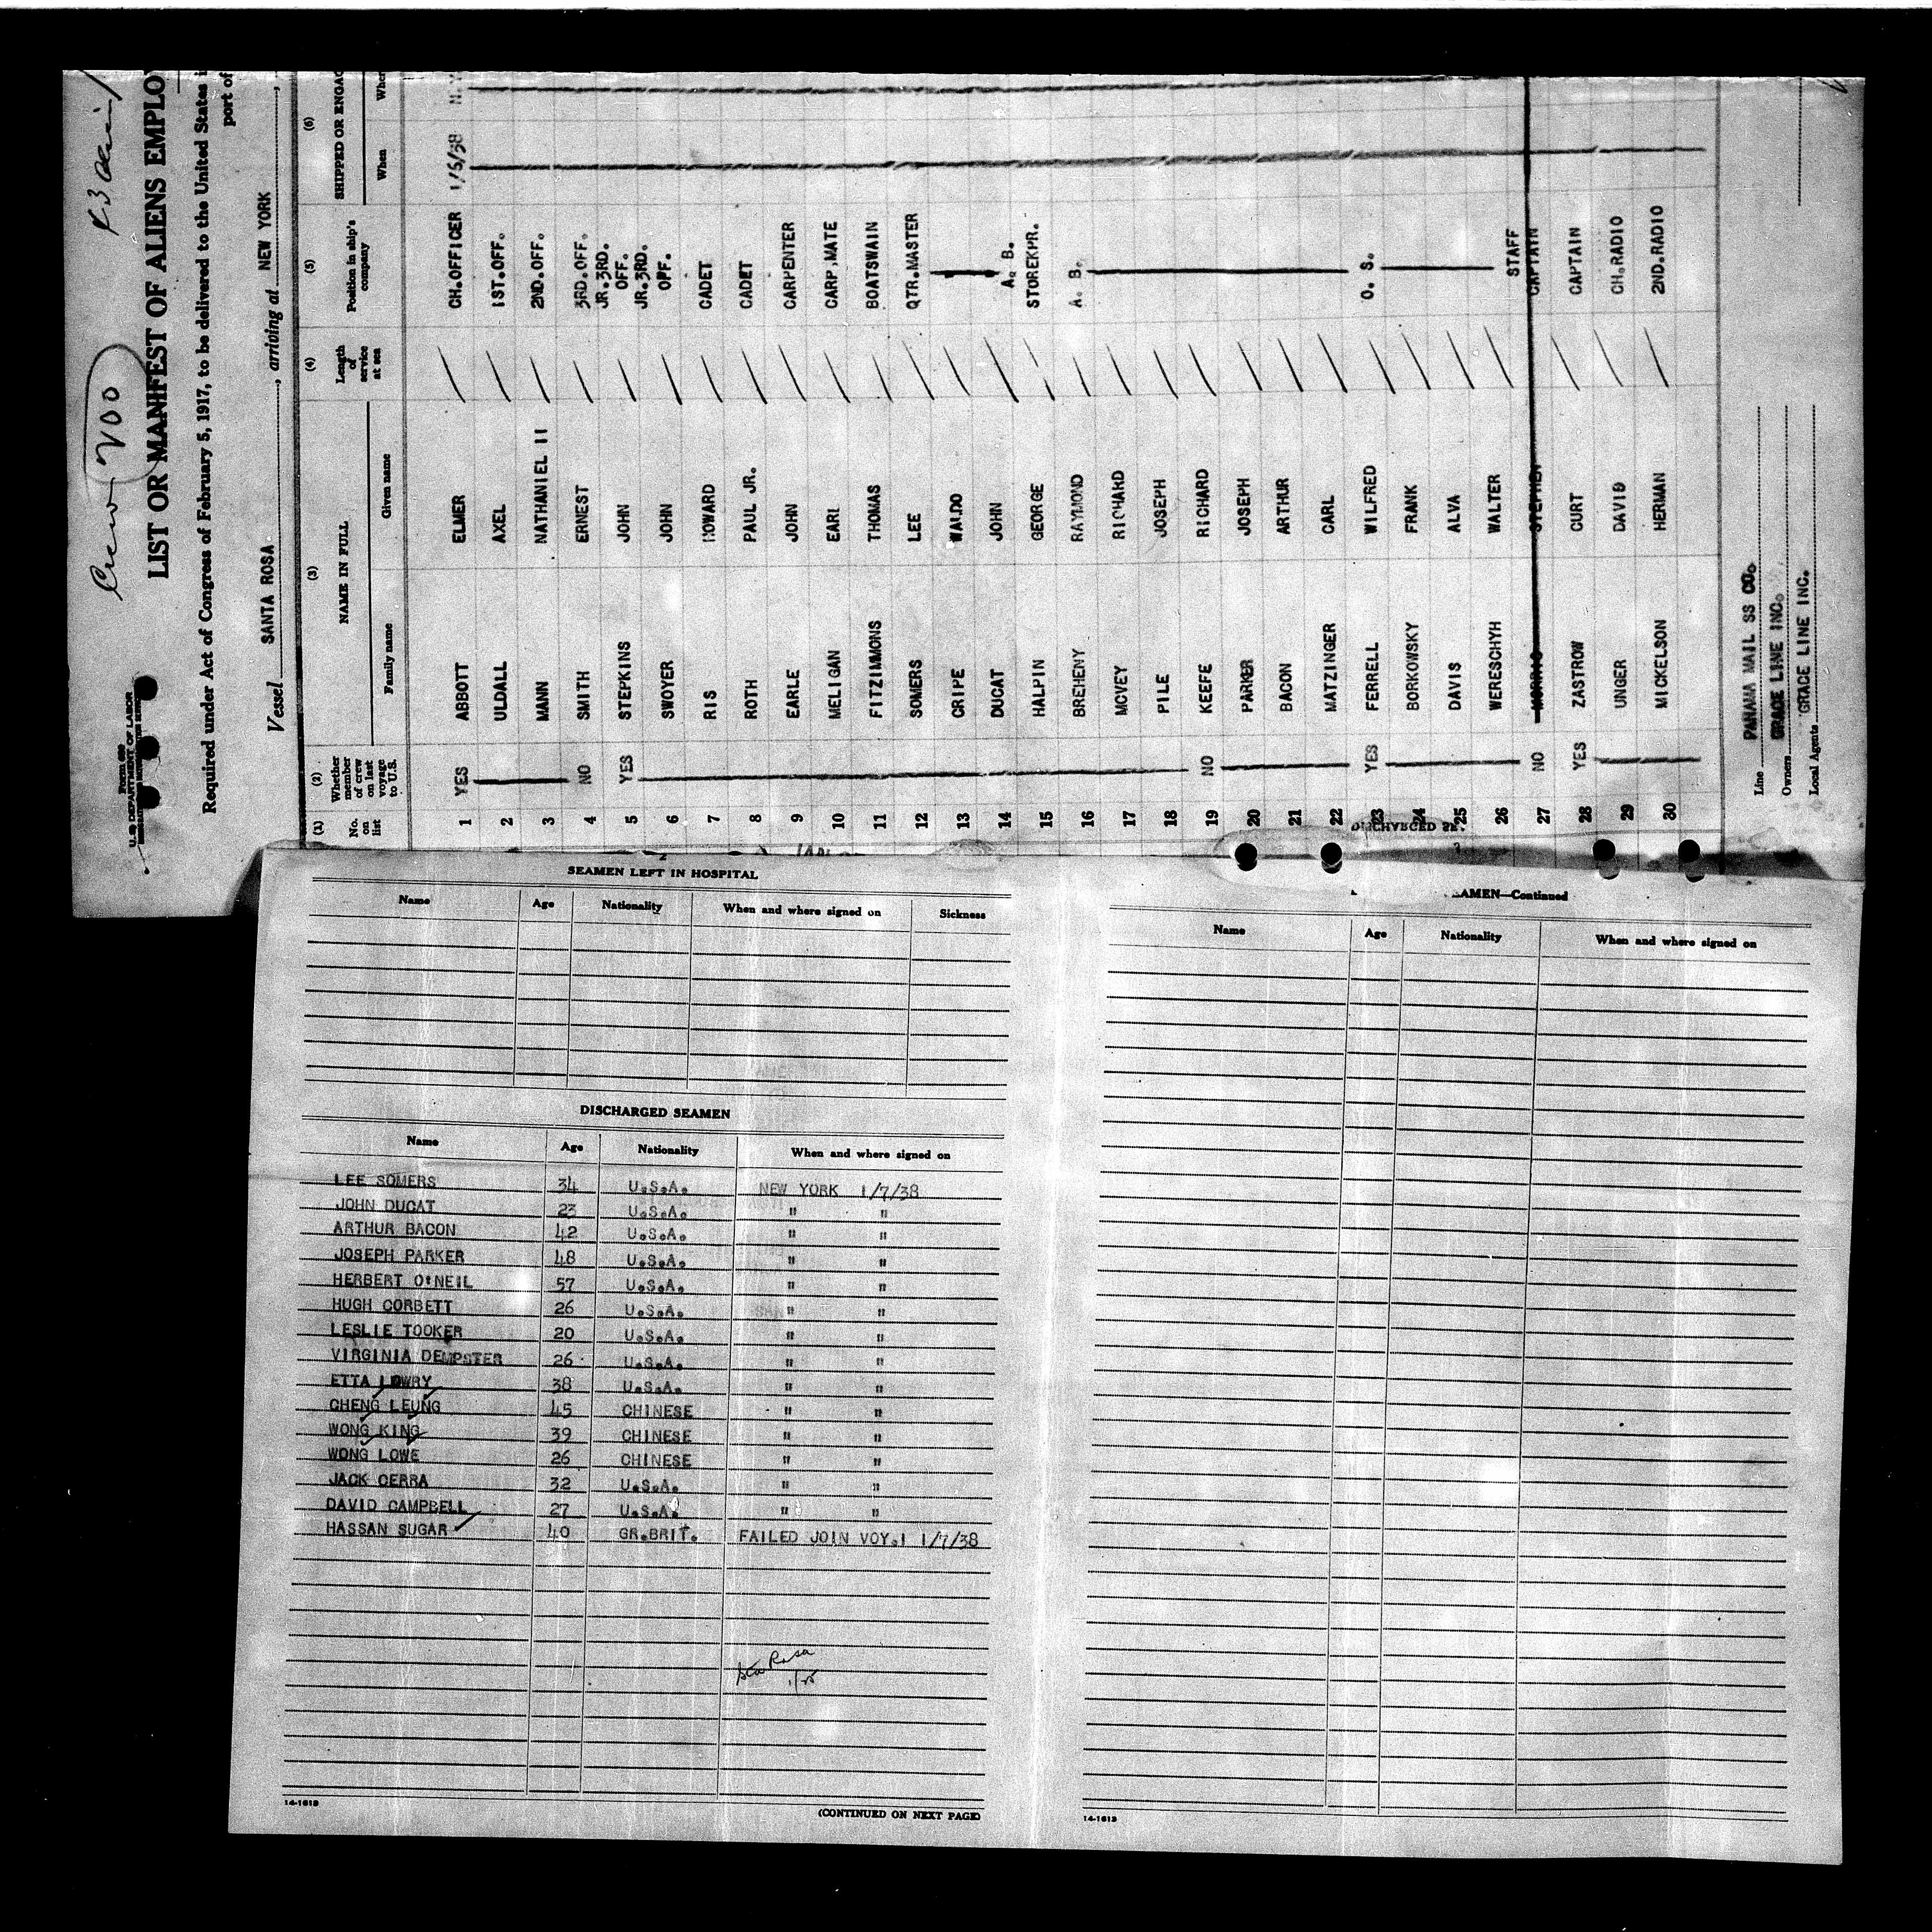 Crew 200
Form 689
U.S. DEPARTMENT OF LABOR
LIST OR MANIFEST OF ALIENS EMPLO
Required under Act of Congress of February 5, 1917, to be delivered to the United States i
port of
Vessel SANTA ROSA, arriving at NEW YORK
(1) (2) (3) (4) (5) (6)
No. on list Whether member of crew on last voyage to U.S. NAME IN FULL Length of service at sea Position in ship's company SHIPPED OR ENGAG
Family name Given name When Wher
1 YES ABBOTT ELMER CH.OFFICER 1/6/38 N.Y
2 ULDALL AXEL 1ST.OFF.
3 MANN NATHANIEL II 2ND.OFF.
4 NO SMITH ERNEST 3RD.OFF.
5 YES STEPKINS JOHN JR.3RD. OFF.
6 SWOYER JOHN JR.3RD. OFF.
7 RIS HOWARD CADET
8 ROTH PAUL JR. CADET
9 EARLE JOHN CARPENTER
10 MELIGAN EARL CARP.MATE
11 FITZIMMONS THOMAS BOATSWAIN
12 SOMERS LEE QTR.MASTER
13 CRIPE WALDO
14 DUCAT JOHN A. B.
15 HALPIN GEORGE STOREKPR.
16 BREHENY RAYMOND A. B.
17 MCVEY RICHARD
18 PILE JOSEPH
19 NO KEEFE RICHARD
20 PARKER JOSEPH
21 BACON ARTHUR
22 MATZINGER CARL
23 YES FERRELL WILFRED O. S.
24 BORKOWSKY FRANK
25 DAVIS ALVA
26 WERESCHYH WALTER
27 NO MORRIS STEPHEN STAFF CAPTAIN
28 YES ZASTROW CURT CAPTAIN
29 UNGER DAVID CH.RADIO
30 MICKELSON HERMAN 2ND.RADIO
Line PANAMA MAIL SS CO.
Owners GRACE LINE INC.
Local Agents GRACE LINE INC.
2
SEAMEN LEFT IN HOSPITAL
Name Age Nationality When and where signed on Sickness
DISCHARGED SEAMEN
Name Age Nationality When and where signed on
LEE SOMERS 34 U.S.A. NEW YORK 1/7/38
JOHN DUCAT 23 U.S.A. " "
ARTHUR BACON 42 U.S.A. " "
JOSEPH PARKER 48 U.S.A. " "
HERBERT O'NEIL 57 U.S.A. " "
HUGH CORBETT 26 U.S.A. " "
LESLIE TOOKER 20 U.S.A. " "
VIRGINIA DEMPSTER 26 U.S.A. " "
ETTA LOWRY 38 U.S.A. " "
CHENG LEUNG 45 CHINESE " "
WONG KING 39 CHINESE " "
WONG LOWE 26 CHINESE " "
JACK CERRA 32 U.S.A. " "
DAVID CAMPBELL 27 U.S.A. " "
HASSAN SUGAR 40 GR.BRIT. FAILED JOIN VOY.1 1/7/38
Sta Rosa
1/25
14-1613
(CONTINUED ON NEXT PAGE)
3
AMEN—Continued
Name Age Nationality When and where signed on
14-1613